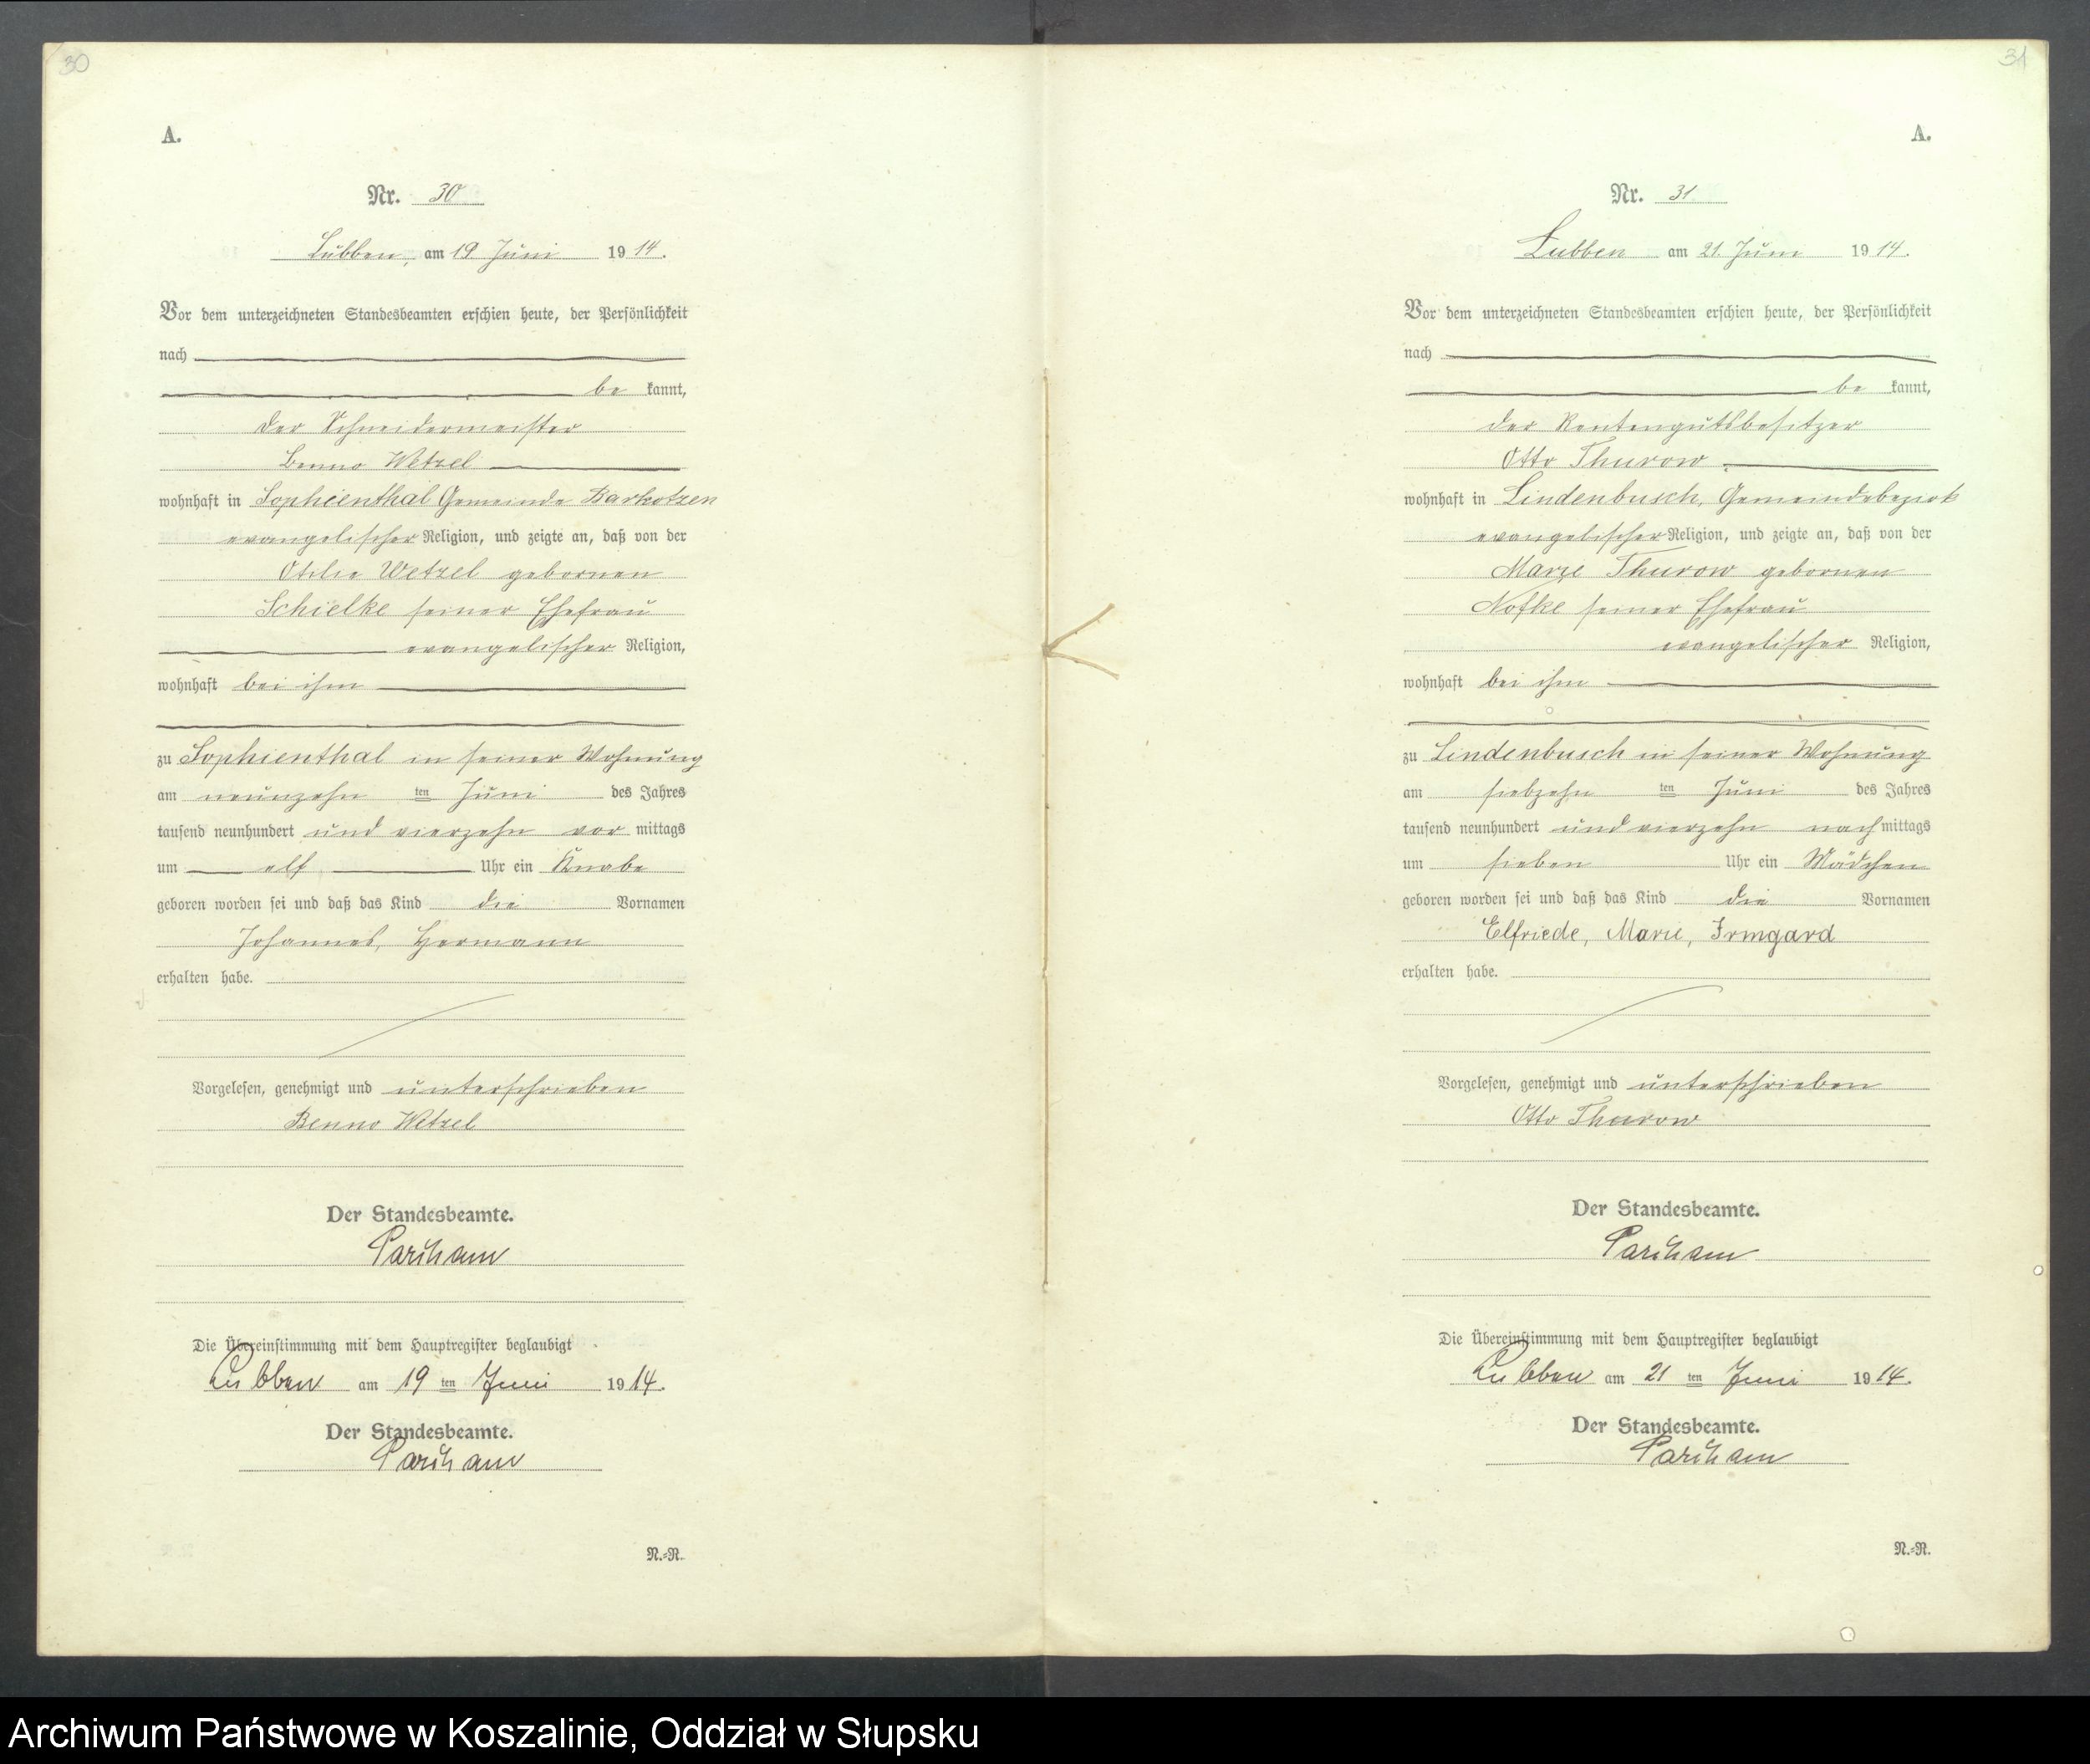 30
A.
Nr. 30
Lübben, am 19 Juni 1914.
Vor dem unterzeichneten Standesbeamten erschien heute, der Persönlichkeit
nach
be kannt,
der Schneidermeister
Benno Wetzel
wohnhaft in Sophienthal Gemeinde Barkotzen
evangelischer Religion, und zeigte an, daß von der
Otilie Wetzel gebornen
Schielke seiner Ehefrau
evangelischer Religion,
wohnhaft bei ihm
zu Sophienthal in seiner Wohnung
am neunzehn ten Juni des Jahres
tausend neunhundert und vierzehn vor mittags
um elf Uhr ein Knabe
geboren worden sei und daß das Kind die Vornamen
Johannes, Hermann
erhalten habe.
Vorgelesen, genehmigt und unterschrieben
Benno Wetzel
Der Standesbeamte.
Die Übereinstimmung mit dem Hauptregister beglaubigt
Lübben am 19 ten Juni 1914.
Der Standesbeamte.
N.-R.
31
A.
Nr. 31
Lubben am 21. Juni 1914.
Vor dem unterzeichneten Standesbeamten erschien heute, der Persönlichkeit
nach
be kannt,
der Rentengutsbesitzer
Otto Thurow
wohnhaft in Lindenbusch, Gemeindebezirk
evangelischer Religion, und zeigte an, daß von der
Marie Thurow gebornen
Nofke seiner Ehefrau
evangelischer Religion,
wohnhaft bei ihm
zu Lindenbusch in seiner Wohnung
am siebzehn ten Juni des Jahres
tausend neunhundert und vierzehn nach mittags
um sieben Uhr ein Mädchen
geboren worden sei und daß das Kind die Vornamen
Elfriede, Marie, Irmgard
erhalten habe.
Vorgelesen, genehmigt und unterschrieben
Otto Thurow
Der Standesbeamte.
Die Übereinstimmung mit dem Hauptregister beglaubigt
Lübben am 21 ten Juni 1914.
Der Standesbeamte.
N.-R.
Archiwum Państwowe w Koszalinie, Oddział w Słupsku